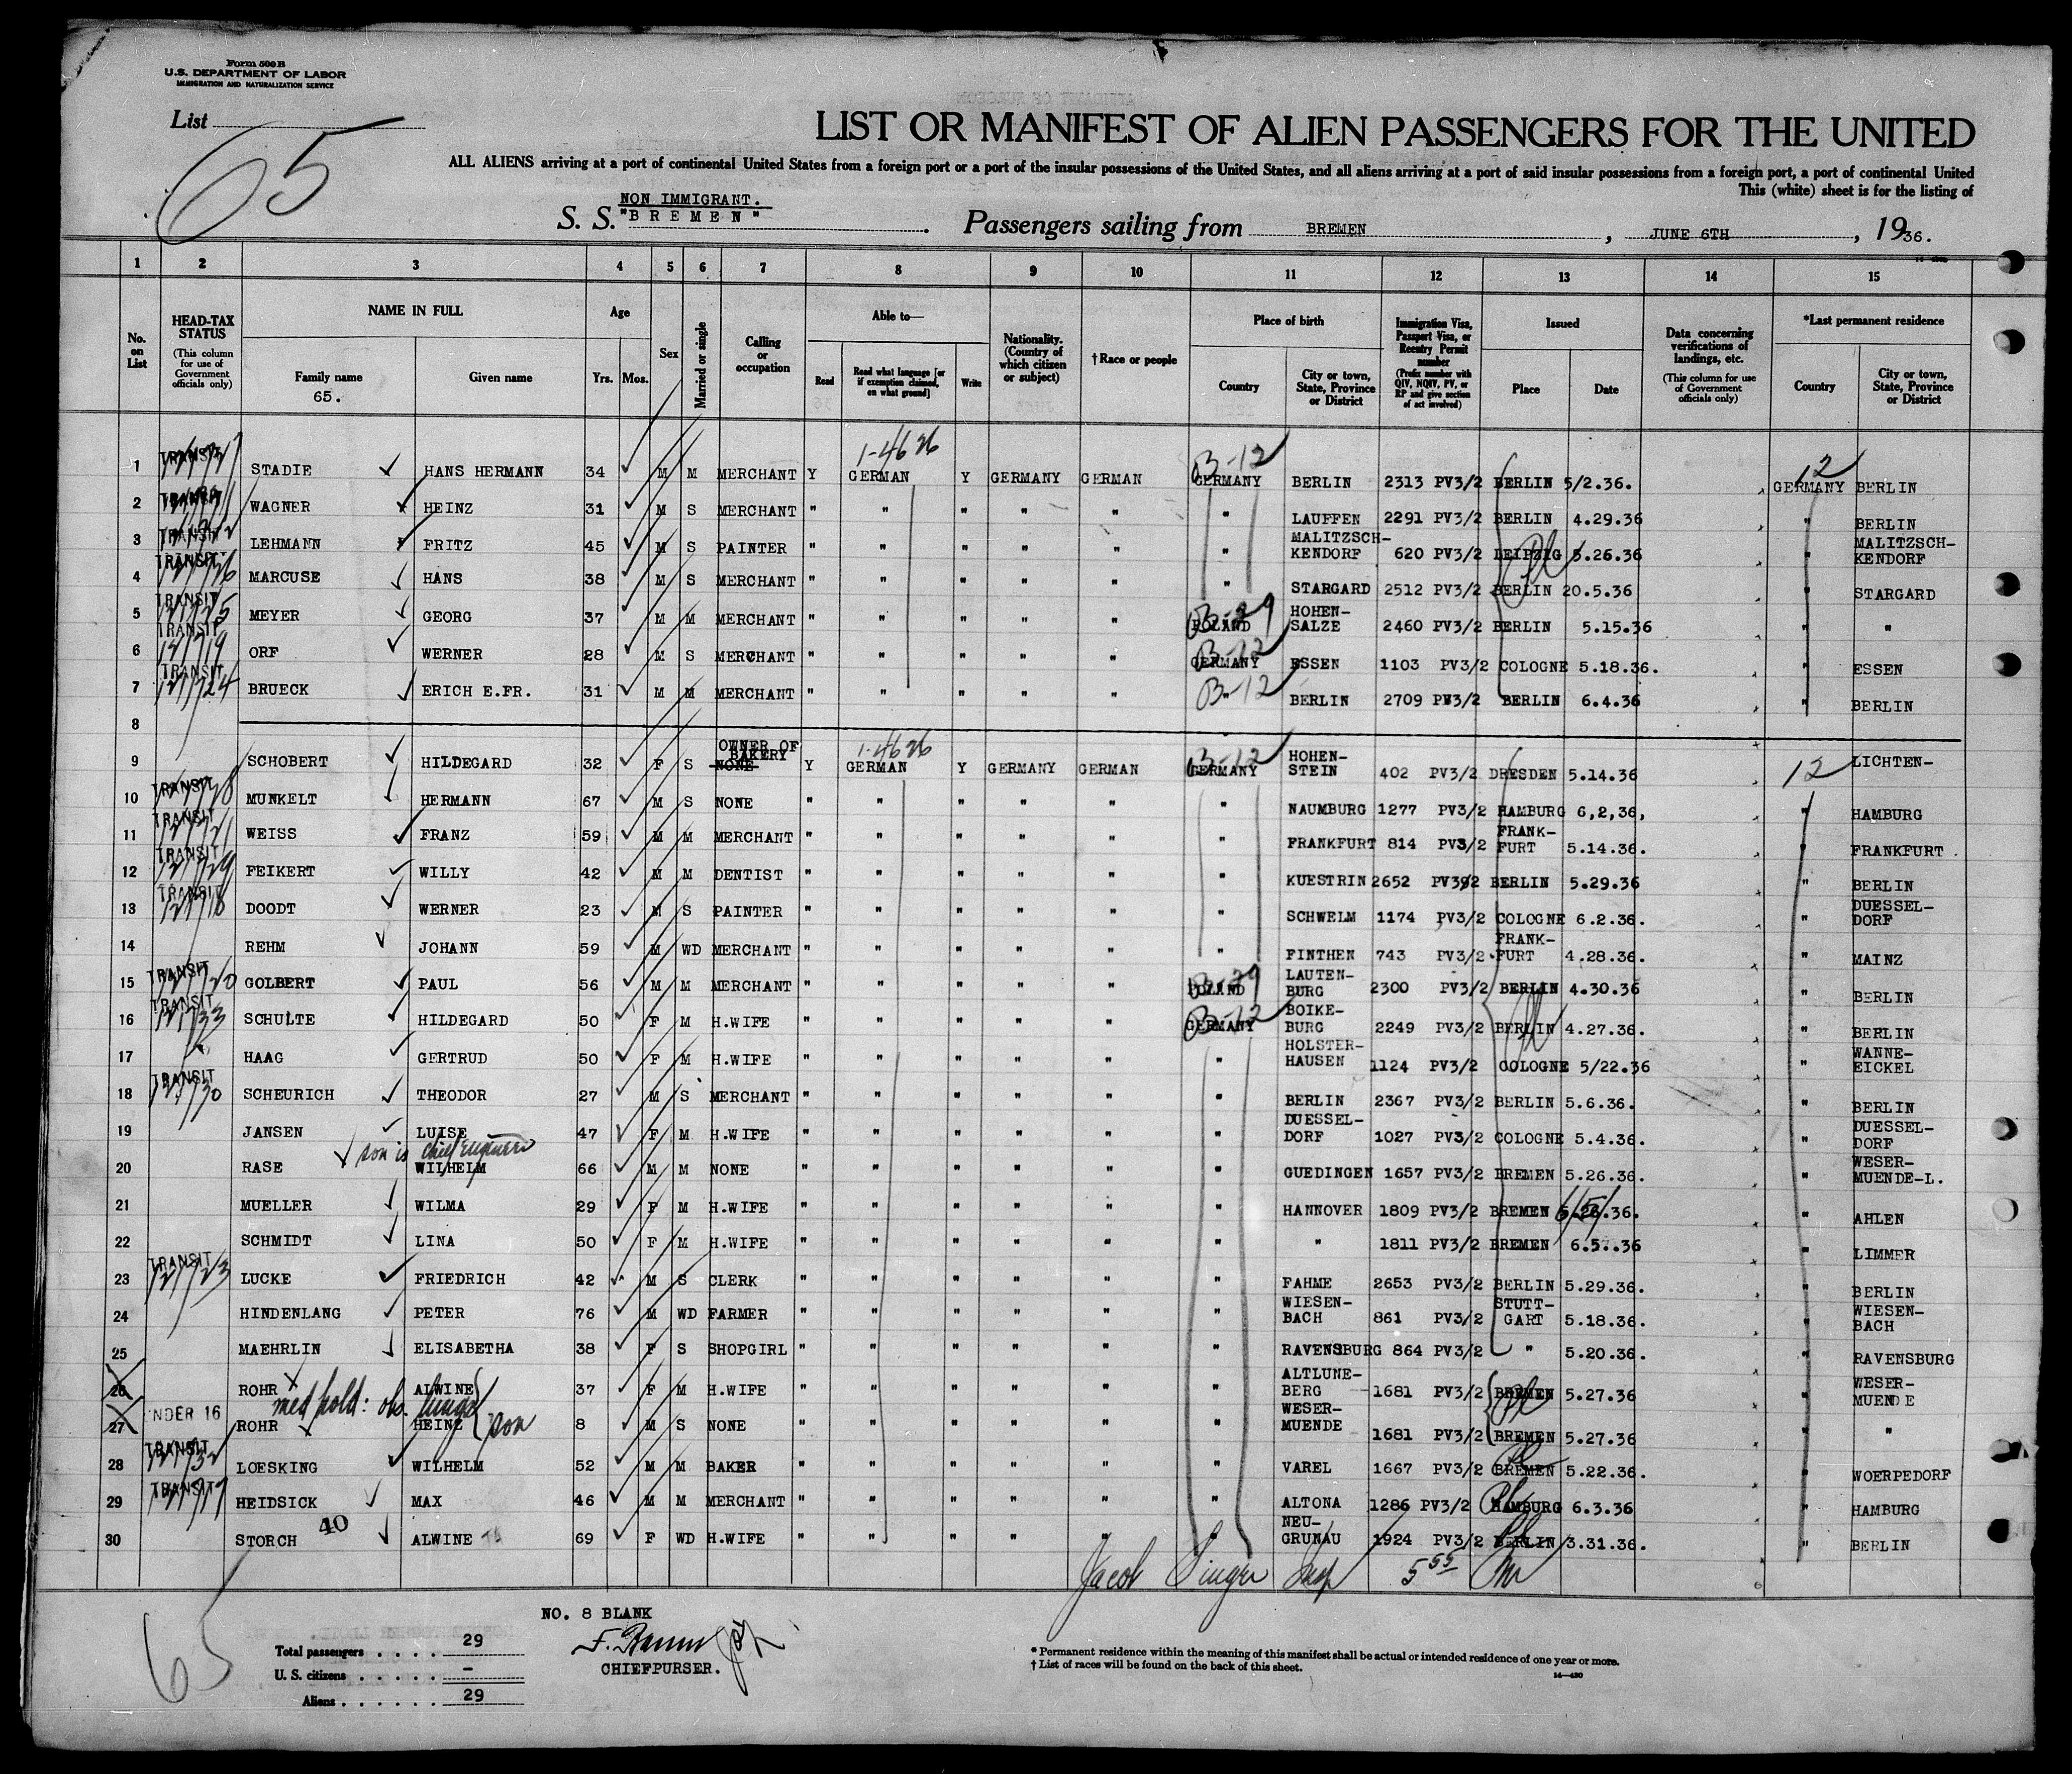 Form 500 B
U.S. DEPARTMENT OF LABOR
IMMIGRATION AND NATURALIZATION SERVICE
List
65
LIST OR MANIFEST OF ALIEN PASSENGERS FOR THE UNITED
ALL ALIENS arriving at a port of continental United States from a foreign port or a port of the insular possessions of the United States, and all aliens arriving at a port of said insular possessions from a foreign port, a port of continental United
This (white) sheet is for the listing of
NON IMMIGRANT.
S. S. "BREMEN". Passengers sailing from BREMEN, JUNE 6TH, 1936.
1 2 3 4 5 6 7 8 9 10 11 12 13 14 15
No. on List
HEAD-TAX STATUS (This column for use of Government officials only)
NAME IN FULL
Family name 65.
Given name
Age Yrs. Mos.
Sex
Married or single
Calling or occupation
Able to— Read Read what language [or if exemption claimed, on what ground] Write
Nationality. (Country of which citizen or subject)
†Race or people
Place of birth Country City or town, State, Province or District
Immigration Visa, Passport Visa, or Reentry Permit number (Prefix number with QIV, NQIV, PV, or RP and give section of act involved)
Issued Place Date
Data concerning verifications of landings, etc. (This column for use of Government officials only)
*Last permanent residence Country City or town, State, Province or District
1-4626 B-12 12
1 TRANSIT STADIE HANS HERMANN 34 M M MERCHANT Y GERMAN Y GERMANY GERMAN GERMANY BERLIN 2313 PV3/2 BERLIN 5/2.36. GERMANY BERLIN
2 TRANSIT WAGNER HEINZ 31 M S MERCHANT " " " " " " LAUFFEN 2291 PV3/2 BERLIN 4.29.36 " BERLIN
3 TRANSIT LEHMANN FRITZ 45 M S PAINTER " " " " " " MALITZSCH-KENDORF 620 PV3/2 LEIPZIG 5.26.36 " MALITZSCH-KENDORF
4 TRANSIT MARCUSE HANS 38 M S MERCHANT " " " " " " STARGARD 2512 PV3/2 BERLIN 20.5.36 " STARGARD
5 TRANSIT MEYER GEORG 37 M M MERCHANT " " " " " POLAND HOHEN-SALZE 2460 PV3/2 BERLIN 5.15.36 " "
6 TRANSIT ORF WERNER 28 M S MERCHANT " " " " " GERMANY ESSEN 1103 PV3/2 COLOGNE 5.18.36. " ESSEN
7 TRANSIT BRUECK ERICH E.FR. 31 M M MERCHANT " " " " " B-12 BERLIN 2709 PV3/2 BERLIN 6.4.36 " BERLIN
8
1-4626 B-12
9 SCHOBERT HILDEGARD 32 F S OWNER OF BAKERY NONE Y GERMAN Y GERMANY GERMAN GERMANY HOHEN-STEIN 402 PV3/2 DRESDEN 5.14.36 12 LICHTEN-
10 TRANSIT MUNKELT HERMANN 67 M S NONE " " " " " " NAUMBURG 1277 PV3/2 HAMBURG 6,2,36, " HAMBURG
11 TRANSIT WEISS FRANZ 59 M M MERCHANT " " " " " " FRANKFURT 814 PV3/2 FRANK-FURT 5.14.36. " FRANKFURT
12 TRANSIT FEIKERT WILLY 42 M M DENTIST " " " " " " KUESTRIN 2652 PV3/2 BERLIN 5.29.36 " BERLIN
13 TRANSIT DOODT WERNER 23 M S PAINTER " " " " " " SCHWELM 1174 PV3/2 COLOGNE 6.2.36. " DUESSEL-DORF
14 REHM JOHANN 59 M WD MERCHANT " " " " " " FINTHEN 743 PV3/2 FRANK-FURT 4.28.36. " MAINZ
15 TRANSIT GOLBERT PAUL 56 M M MERCHANT " " " " " POLAND LAUTEN-BURG 2300 PV3/2 BERLIN 4.30.36 " BERLIN
16 TRANSIT SCHULTE HILDEGARD 50 F M H.WIFE " " " " " GERMANY BOIKE-BURG 2249 PV3/2 BERLIN 4.27.36. " BERLIN
17 HAAG GERTRUD 50 F M H.WIFE " " " " " " HOLSTER-HAUSEN 1124 PV3/2 COLOGNE 5/22.36 " WANNE-EICKEL
18 TRANSIT SCHEURICH THEODOR 27 M S MERCHANT " " " " " " BERLIN 2367 PV3/2 BERLIN 5.6.36. " BERLIN
19 JANSEN LUISE 47 F M H.WIFE " " " " " " DUESSEL-DORF 1027 PV3/2 COLOGNE 5.4.36. " DUESSEL-DORF
son is chief engineer
20 RASE WILHELM 66 M M NONE " " " " " " GUEDINGEN 1657 PV3/2 BREMEN 5.26.36. " WESER-MUENDE-L.
21 MUELLER WILMA 29 F M H.WIFE " " " " " " HANNOVER 1809 PV3/2 BREMEN 6/5/.36. " AHLEN
22 SCHMIDT LINA 50 F M H.WIFE " " " " " " " 1811 PV3/2 BREMEN 6.5..36 " LIMMER
23 TRANSIT LUCKE FRIEDRICH 42 M S CLERK " " " " " " FAHME 2653 PV3/2 BERLIN 5.29.36 " BERLIN
24 HINDENLANG PETER 76 M WD FARMER " " " " " " WIESEN-BACH 861 PV3/2 STUTT-GART 5.18.36. " WIESEN-BACH
25 MAEHRLIN ELISABETHA 38 F S SHOPGIRL " " " " " " RAVENSBURG 864 PV3/2 " 5.20.36. " RAVENSBURG
26 ROHR ALWINE 37 F M H.WIFE " " " " " " ALTLUNE-BERG 1681 PV3/2 BREMEN 5.27.36 " WESER-MUENDE
med hold: obs. lungs son
27 NDER 16 ROHR HEINZ 8 M S NONE " " " " " " WESER-MUENDE 1681 PV3/2 BREMEN 5.27.36 " "
28 TRANSIT LOESKING WILHELM 52 M M BAKER " " " " " " VAREL 1667 PV3/2 BREMEN 5.22.36. " WOERPEDORF
29 TRANSIT HEIDSICK MAX 46 M M MERCHANT " " " " " " ALTONA 1286 PV3/2 HAMBURG 6.3.36 " HAMBURG
30 STORCH 40 ALWINE 69 F WD H.WIFE " " " " " " NEU-GRUNAU 1924 PV3/2 BERLIN 3.31.36. " BERLIN
Jacob Singer Insp 5 55 Pm
65
NO. 8 BLANK
Total passengers . . . . 29
U. S. citizens . . . . . . –
Aliens . . . . . . 29
CHIEFPURSER.
* Permanent residence within the meaning of this manifest shall be actual or intended residence of one year or more.
† List of races will be found on the back of this sheet.
14—430